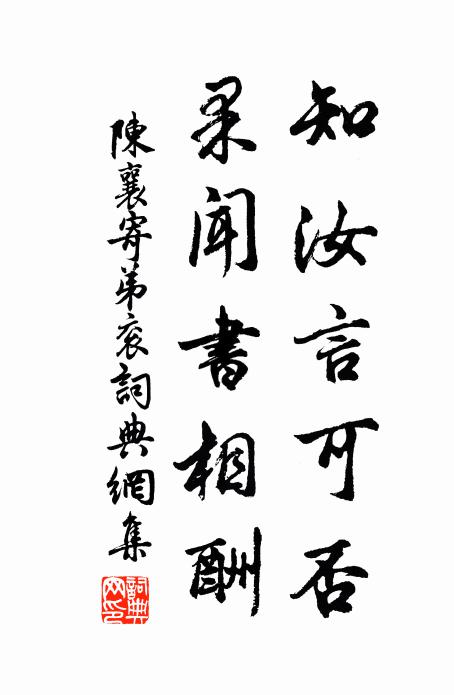 知汝言可否
果聞書相酬
陳襄寄弟袞詞典網集
詞典網印